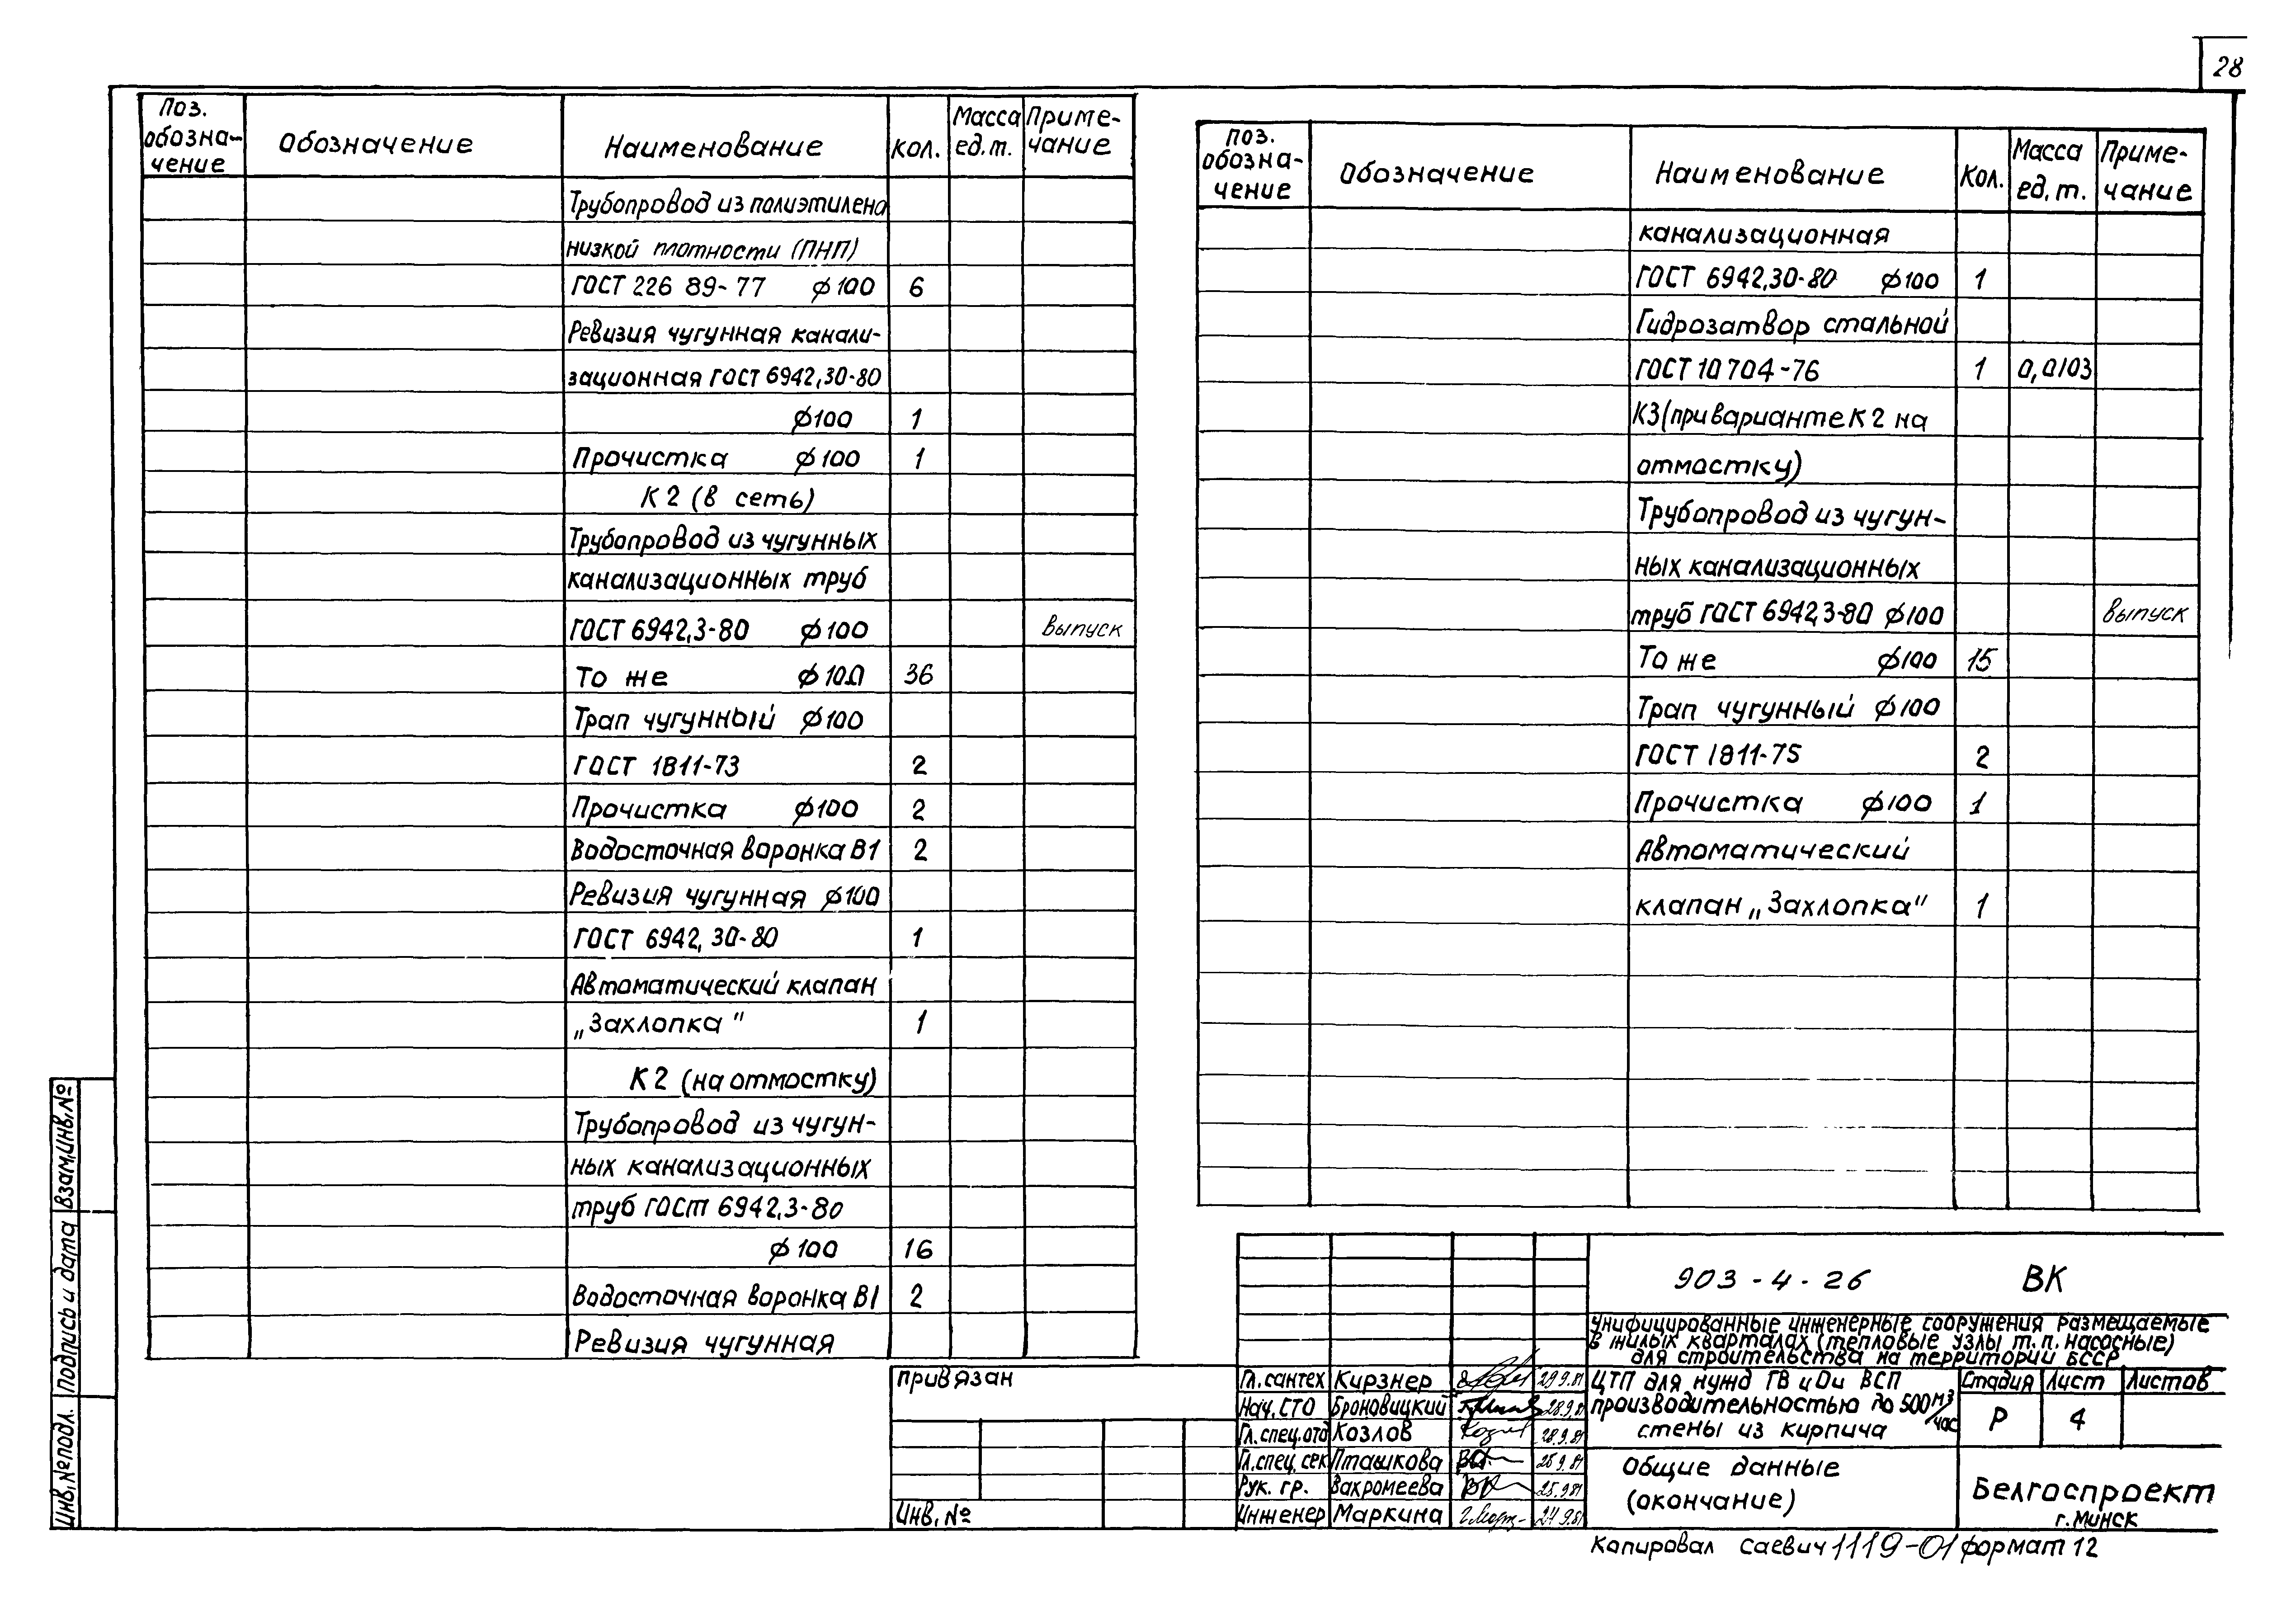 28
Поз. обозна-чение Обозначение Наименование Кол. Масса ед.т. Приме-чание
Трубопровод из полиэтилена
низкой плотности (ПНП)
ГОСТ 226 89-77 ϕ100 6
Ревизия чугунная канали-
зационная ГОСТ 6942,30-80
ϕ100 1
Прочистка ϕ100 1
К2 (в сеть)
Трубопровод из чугунных
канализационных труб
ГОСТ 6942,3-80 ϕ100 выпуск
То же ϕ100 36
Трап чугунный ϕ100
ГОСТ 1811-73 2
Прочистка ϕ100 2
Водосточная воронка В1 2
Ревизия чугунная ϕ100
ГОСТ 6942,30-80 1
Автоматический клапан
„Захлопка" 1
К2 (на отмостку)
Трубопровод из чугун-
ных канализационных
труб ГОСТ 6942,3-80
ϕ100 16
Водосточная воронка В1 2
Ревизия чугунная
Поз. обозна-чение Обозначение Наименование Кол. Масса ед.т. Приме-чание
канализационная
ГОСТ 6942,30-80 ϕ100 1
Гидрозатвор стальной
ГОСТ 10704-76 1 0,0103
К3(при варианте К2 на
отмостку)
Трубопровод из чугун-
ных канализационных
труб ГОСТ 6942,3-80 ϕ100 выпуск
То же ϕ100 15
Трап чугунный ϕ100
ГОСТ 1811-75 2
Прочистка ϕ100 1
Автоматический
клапан „Захлопка" 1
903-4-26 ВК
Унифицированные инженерные сооружения размещаемые
в жилых кварталах (тепловые узлы т.п. насосные)
для строительства на территории БССР
Гл.сантех Кирзнер 29.9.81
Нач.СТО Броновицкий 28.9.81
Гл.спец.отд Козлов 28.9.81
Гл.спец.сек Пташкова 25.9.81
Рук. гр. Вахромеева 25.9.81
Инженер Маркина 24.9.81
ЦТП для нужд ГВ и От ВСП
производительностью до 500 м³/час
стены из кирпича
Стадия Лист Листов
Р 4
Общие данные
(окончание)
Белгоспроект
г.Минск
Привязан
Инв.№
Инв.№подл. Подпись и дата Взам.инв.№
Копировал Саевич 1119-01 формат 12